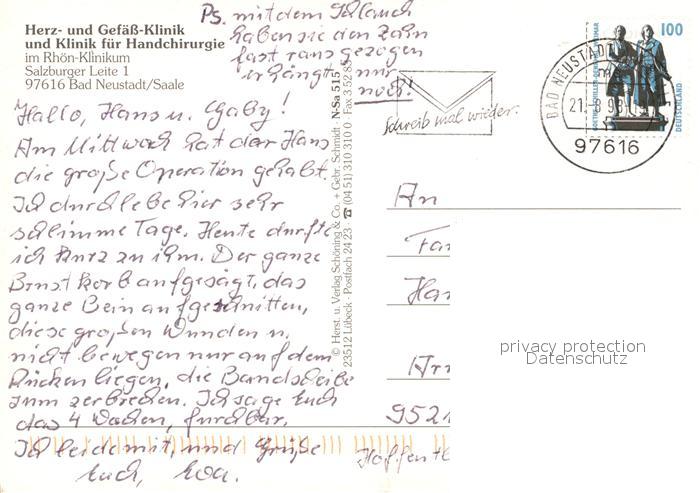 Herz- und Gefäß-Klinik
und Klinik für Handchirurgie
im Rhön-Klinikum
Salzburger Leite 1
97616 Bad Neustadt/Saale
Ps. mit dem Schlauch
haben sie den Zahn
fast raus gezogen
er hängt nur
noch!
Hallo, Hans u. Gaby!
Am Mittwoch hat der Hans
die große Operation gehabt.
Ich durchlebe hier sehr
schlimme Tage. Heute durfte
ich kurz zu ihm. Der ganze
Brustkorb aufgesägt, das
ganze Bein aufgeschnitten,
diese großen Wunden u.
nicht bewegen nur auf dem
Rücken liegen, die Bandscheibe
zum zerbrechen. Ich sage Euch
das 4 Wochen, furchbar.
Ich leide mit, und Grüße
Euch, Eva.
© Herst. u. Verlag Schöning & Co. + Gebr. Schmidt N-Sa 515
23512 Lübeck · Postfach 24 23 ☎ (04 51) 310 310 0 · Fax 3 52 83
Schreib mal wieder.
BAD NEUSTADT
21.-8.98
97616
100
DEUTSCHLAND
An
Fa
Ha
952
privacy protection
Datenschutz